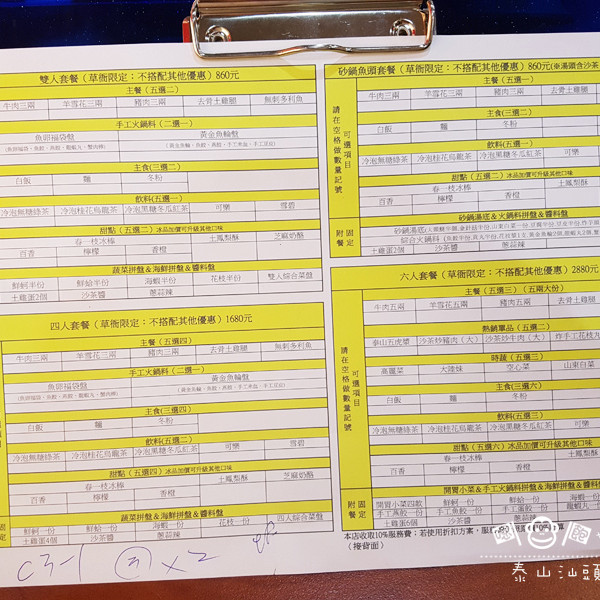 雙人套餐（草衙限定：不搭配其他優惠）860元
主餐（五選二）
牛肉三兩 羊雪花三兩 豬肉三兩 去背土雞腿 無刺多利魚
手工火鍋料（二選一）
魚卵福袋盤 黃金魚輪盤
主食(三選二）
白飯 麵 冬粉
飲料(五選一）
冷泡無糖綠茶 冷泡桂花烏龍茶 冷泡黑糖冬瓜紅茶 可樂 雪碧
甜點（五選二）冰品加價可升級其他口味
春一枝冰棒 土鳳梨酥 芝麻奶酪
百香 檸檬 香橙
蔬菜拼盤＆海鮮拼盤＆醬料盤
鮮蚵半份 鮮蛤半份 海蝦半份 花枝半份 雙人綜合菜盤
土雞蛋2個 沙茶醬 蔥蒜辣
四人套餐（草衙限定：不搭配其他優惠）1680元
主餐（五選四）
牛肉三兩 羊雪花三兩 豬肉三兩 去背土雞腿 無刺多利魚
手工火鍋料（二選一）
魚卵福袋盤 黃金魚輪盤
主食(四選四）
白飯 麵 冬粉
飲料(五選二）
冷泡無糖綠茶 冷泡桂花烏龍茶 冷泡黑糖冬瓜紅茶 可樂 雪碧
甜點（五選四）冰品加價可升級其他口味
春一枝冰棒 土鳳梨酥 芝麻奶酪
百香 檸檬 香橙
蔬菜拼盤＆海鮮拼盤＆醬料盤
鮮蚵一份 鮮蛤一份 海蝦一份 花枝一份 四人綜合菜盤
土雞蛋4個 沙茶醬 蔥蒜辣
C3-1
砂鍋魚頭套餐（草衙限定：不搭配其他優惠）860元(※湯頭含沙茶
主餐（五選一）
牛肉三兩 羊雪花三兩 豬肉三兩 去背土雞腿
主食(三選二）
白飯 麵 冬粉
飲料(五選一）
冷泡無糖綠茶 冷泡桂花烏龍茶 冷泡黑糖冬瓜紅茶 可樂
甜點（五選二）冰品加價可升級其他口味
春一枝冰棒 土鳳梨酥
百香 檸檬 香橙
請在空格做數量記號
可選項目
附餐 固定
砂鍋湯底＆火鍋料拼盤＆醬料盤
土雞蛋2個 沙茶醬 蔥蒜辣
六人套餐（草衙限定：不搭配其他優惠）2880元
主餐（五選三）（五兩大份）
牛肉五兩 羊雪花五兩 豬肉五兩 去背土雞腿
熱銷單品（五選二）
泰山五虎漿 沙茶炒豬肉（大） 沙茶炒牛肉（大） 炸手工花枝丸
時蔬（五選三）
高麗菜 大陸妹 空心菜 山東白菜
主食(三選六）
白飯 麵 冬粉
飲料(五選三）
冷泡無糖綠茶 冷泡桂花烏龍茶 冷泡黑糖冬瓜紅茶 可樂
甜點（五選六）冰品加價可升級其他口味
春一枝冰棒 土鳳梨酥
百香 檸檬 香橙
請在空格做數量記號
可選項目
附餐 固定
開胃小菜＆手工火鍋料拼盤＆海鮮拼盤＆醬
開胃小菜四款 鮮蚵一份 鮮蛤一份 海蝦一份
手工蒸餃一份 手工魚餃一份 手工燕餃一份 龍蝦丸
土雞蛋6個 沙茶醬 蔥蒜辣
本店收取10%服務費；若使用折扣方案，服
（接背面）
泰山汕頭